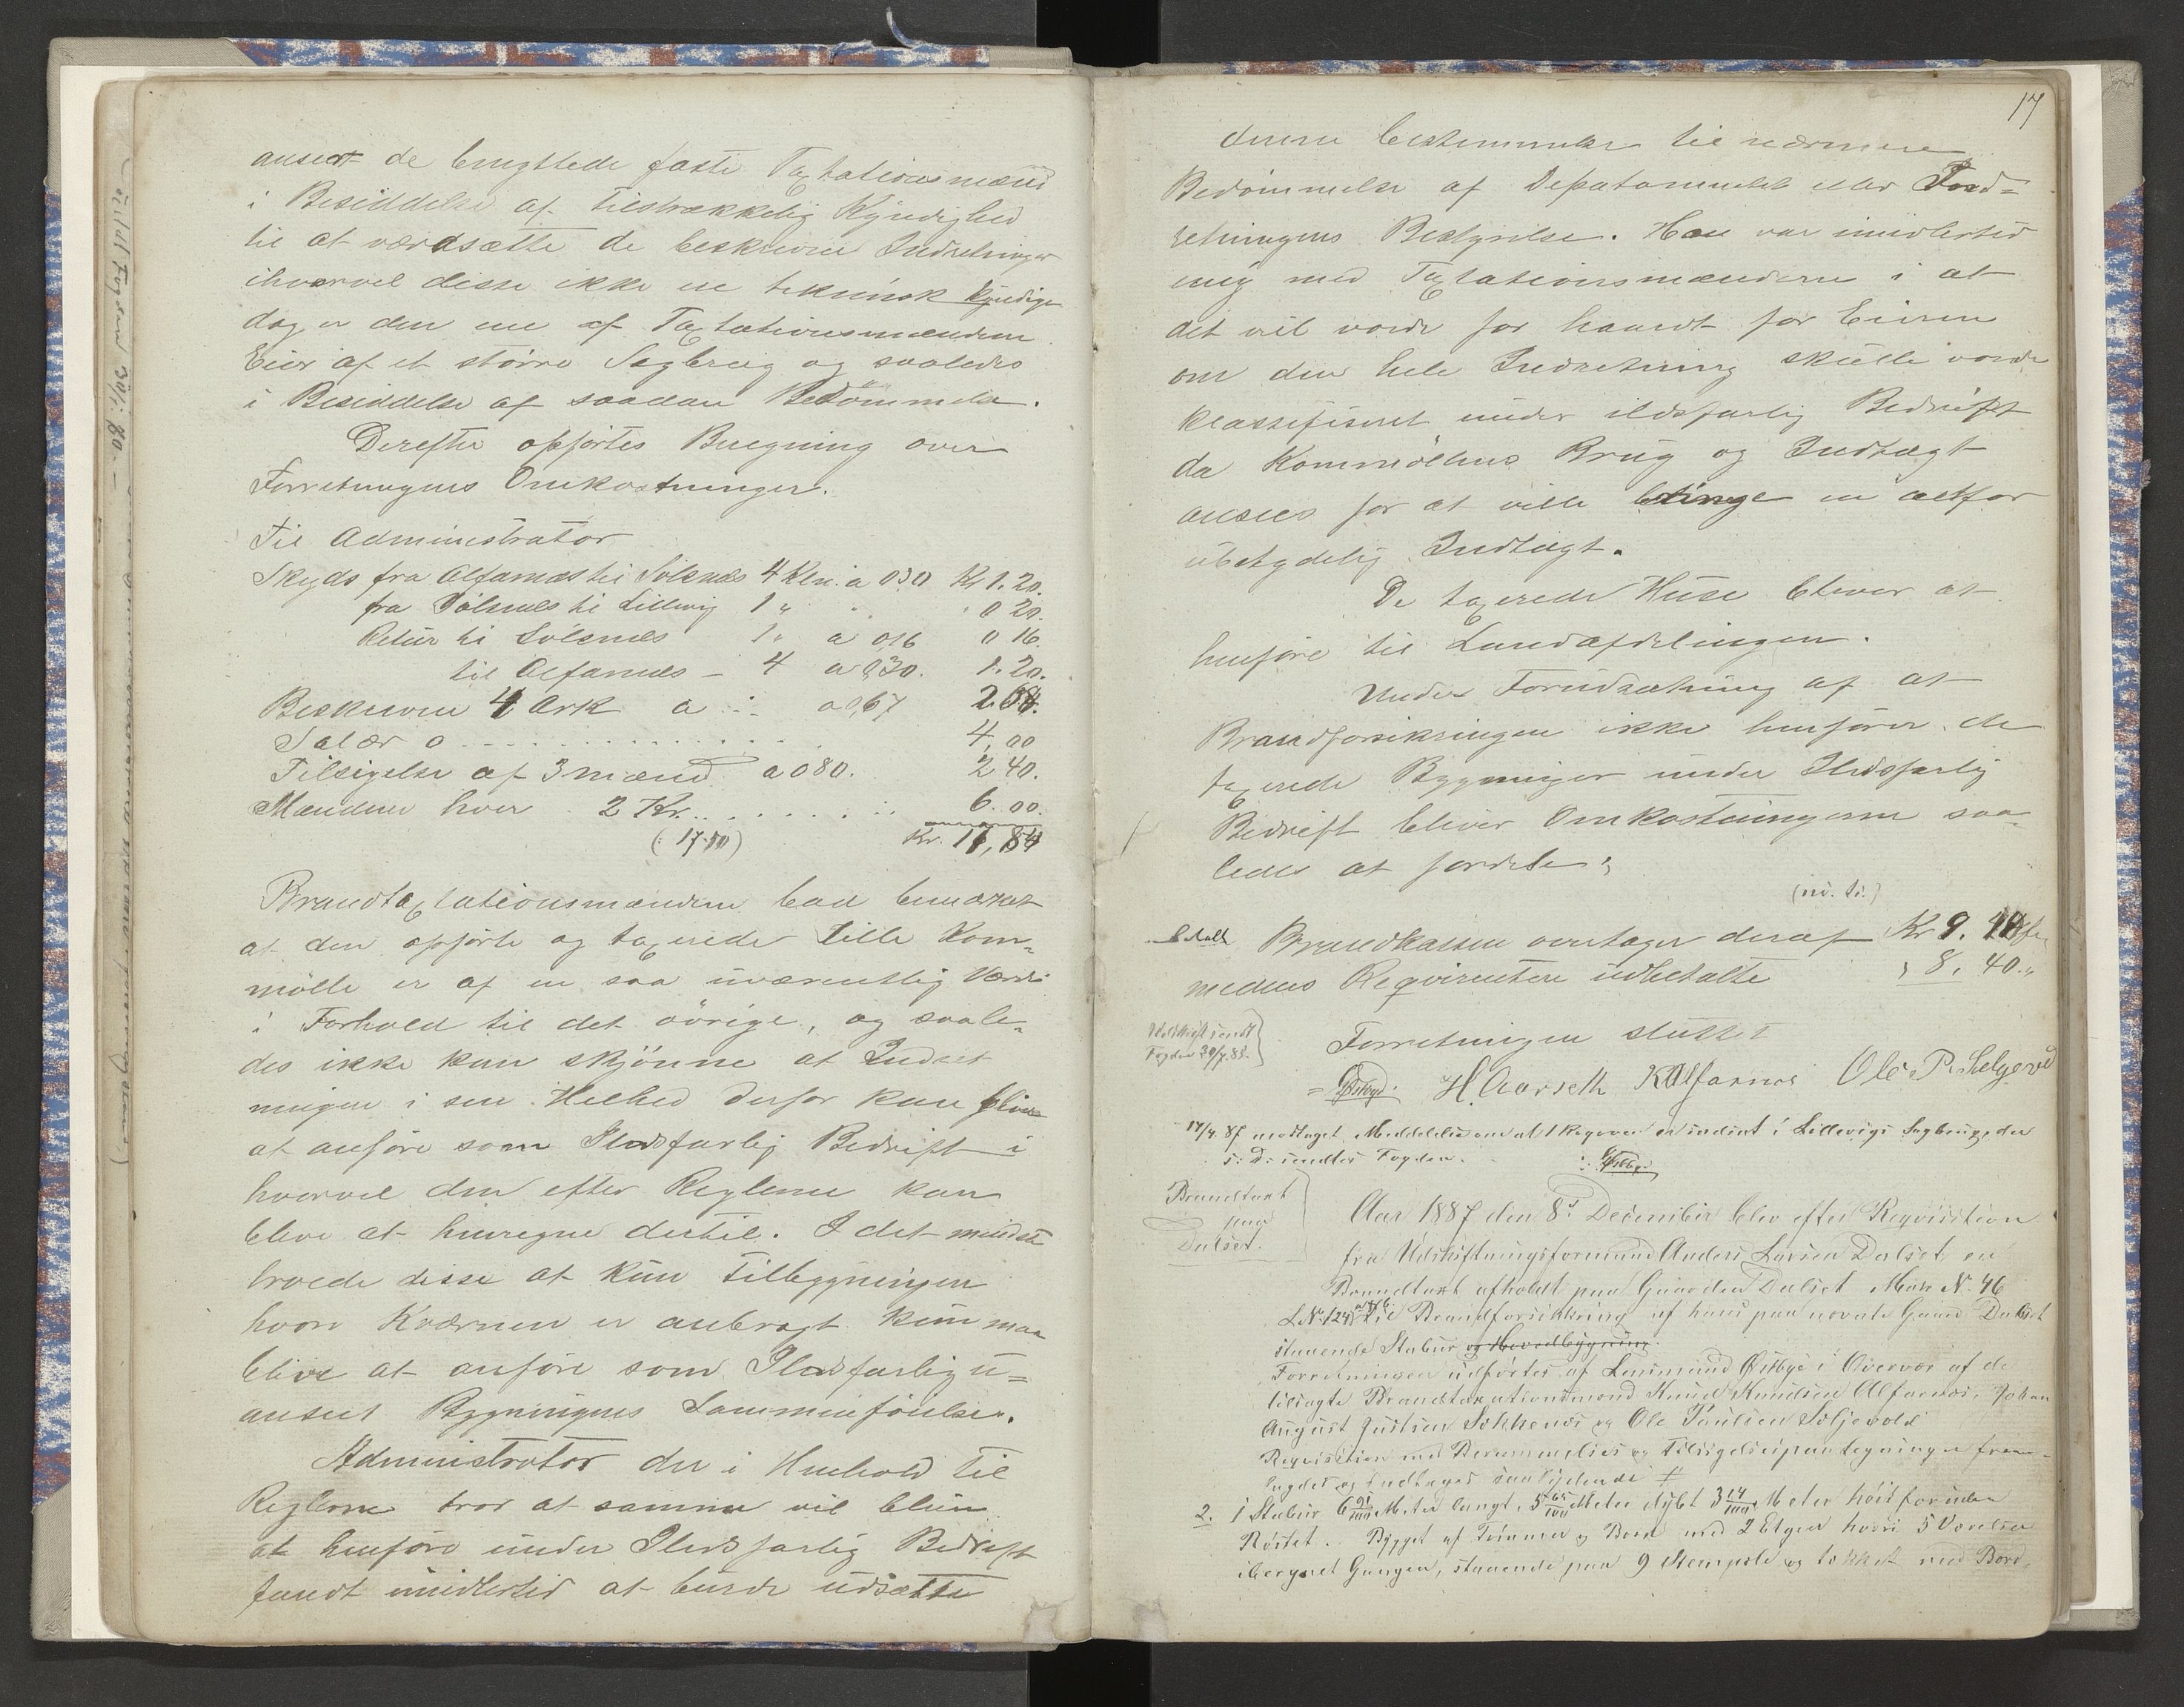 anseet de benyttede faste Taxtationsmænd
i Besiddelse af tilstrækkelig Kyndighed
til at værdsætte de beskrevne Indretninger
ihvorvel disse ikke ere teknisk kyndige
dog er den ene af Taxtationsmændene
Eier af et större Sagbrug og saaledes
i Besiddelse af saadan Bedömmelse.
Derefter opförtes Beregning over
Forretningens Omkostninger.
Til Administrator
Skyds fra Alfarnæs til Sölsnæs 4 Klm. a 030 Kr 1.20.
fra Sölsnæs til Lillevig 1 " " 0 20.
Retur til Sölsnæs 1 " a 016 0 16.
til Alfarnæs - 4 a 0,30. 1.20.
Beskreven 4 Ark a a 0,67 2.68.
Salær o 4,00
Tilsigelse af 3 mænd a 080. 2 40.
Mændene hver 2 Kr. 6.00.
(17.80) Kr. 17,84
Brandtaxtationsmændene bad bemærket
at den opförte og taxerede lille Korn-
mölle er af en saa uværentlig Værdi
i Forhold til det övrige, og saale-
des ikke kan skjönne at Indret
ningen i sin Helhed derfor kan blive
at anföre som Ildsfarlig Bedrift i
hvorvel den efter Reglerne kan
blive at henregne dertil. I det mindste
troede disse at kun Tilbygningen
hvori Kværnen er anbragt kun maa
blive at anföre som Ildsfarlig u-
anseet Bygningens Sammenföielse.
Administrator der i Henhold til
Reglerne tror at samme vil blive
at henföre under Ildsfarlig Bedrift
fandt imidlertid at burde udsætte
17
denne bestemmelse til nærmere
Bedömmelse af Depatamentet eller Ind-
retningens Bestyrelse. Han var imidlertid
enig med Taxtationsmændene i at
det vil vorde for haardt for Eieren
om den hele Indretning skulle vorde
klassifiseret under ildsfarlig Bedrift
da Kornmöllens Brug og Indtægt
ansees for at ville betinge en altfor
ubetydelig Indtægt.
De taxerede Huse bliver at
henföre til Landafdelingen.
Under Forudsætning af at
Brandforsikringen ikke henförer de
taxerede Bygninger under Ildsfarlig
Bedrift bliver Omkostningerne saa-
ledes at fordele;
(ni. ti.)
betalt Brandkassen overtager deraf Kr 9.
medens Reqvirenten udbetalte " 8. 40. "
Udskrift sendt
Fogden
Forretningen sluttet
Östbye. H Aarseth K Alfarnes Ole P. Seljevold
14/4. 87 modtaget Meddelelse om at 1 Kogeovn er indsat i Lillevigs Sagbrug, der
s: D: sendtes Fogden. Östbye
Brandtaxt
paa
Dalset.
Aar 1887 den 8de December blev efter Reqvisition
fra Udskiftningsformand Anders Larsen Dalset, en
Brandtaxt afholdt paa Gaarden Dalset Matr N. 46
L.No 124 til Brandforsikring af hans paa nævnte Gaard Dalset
staaende Stabur og Hovedbygning.
Forretningen udförtes af Lensmand Østbye i Overvær af de
tilsagte Brandtaxationsmænd Knud Knudsen Alfarnæs, Johan
August Justsen Sekkenæs og Ole Paulsen Seljevold
Reqvisition med Berammelses og tilsigelsespaategninger frem-
lagdes og indtages saalydende #
2. 1 Stabur 6 91/100 Meter langt, 5 65/100 Meter dybt 3 14/100 Meter höit foruden
Röstet. Bygget af Tömmer og Bord med 2 Etger hvori 5 Værelser
iberegnet Gangen, staaende paa 9 Stempele og tækket med Bord-